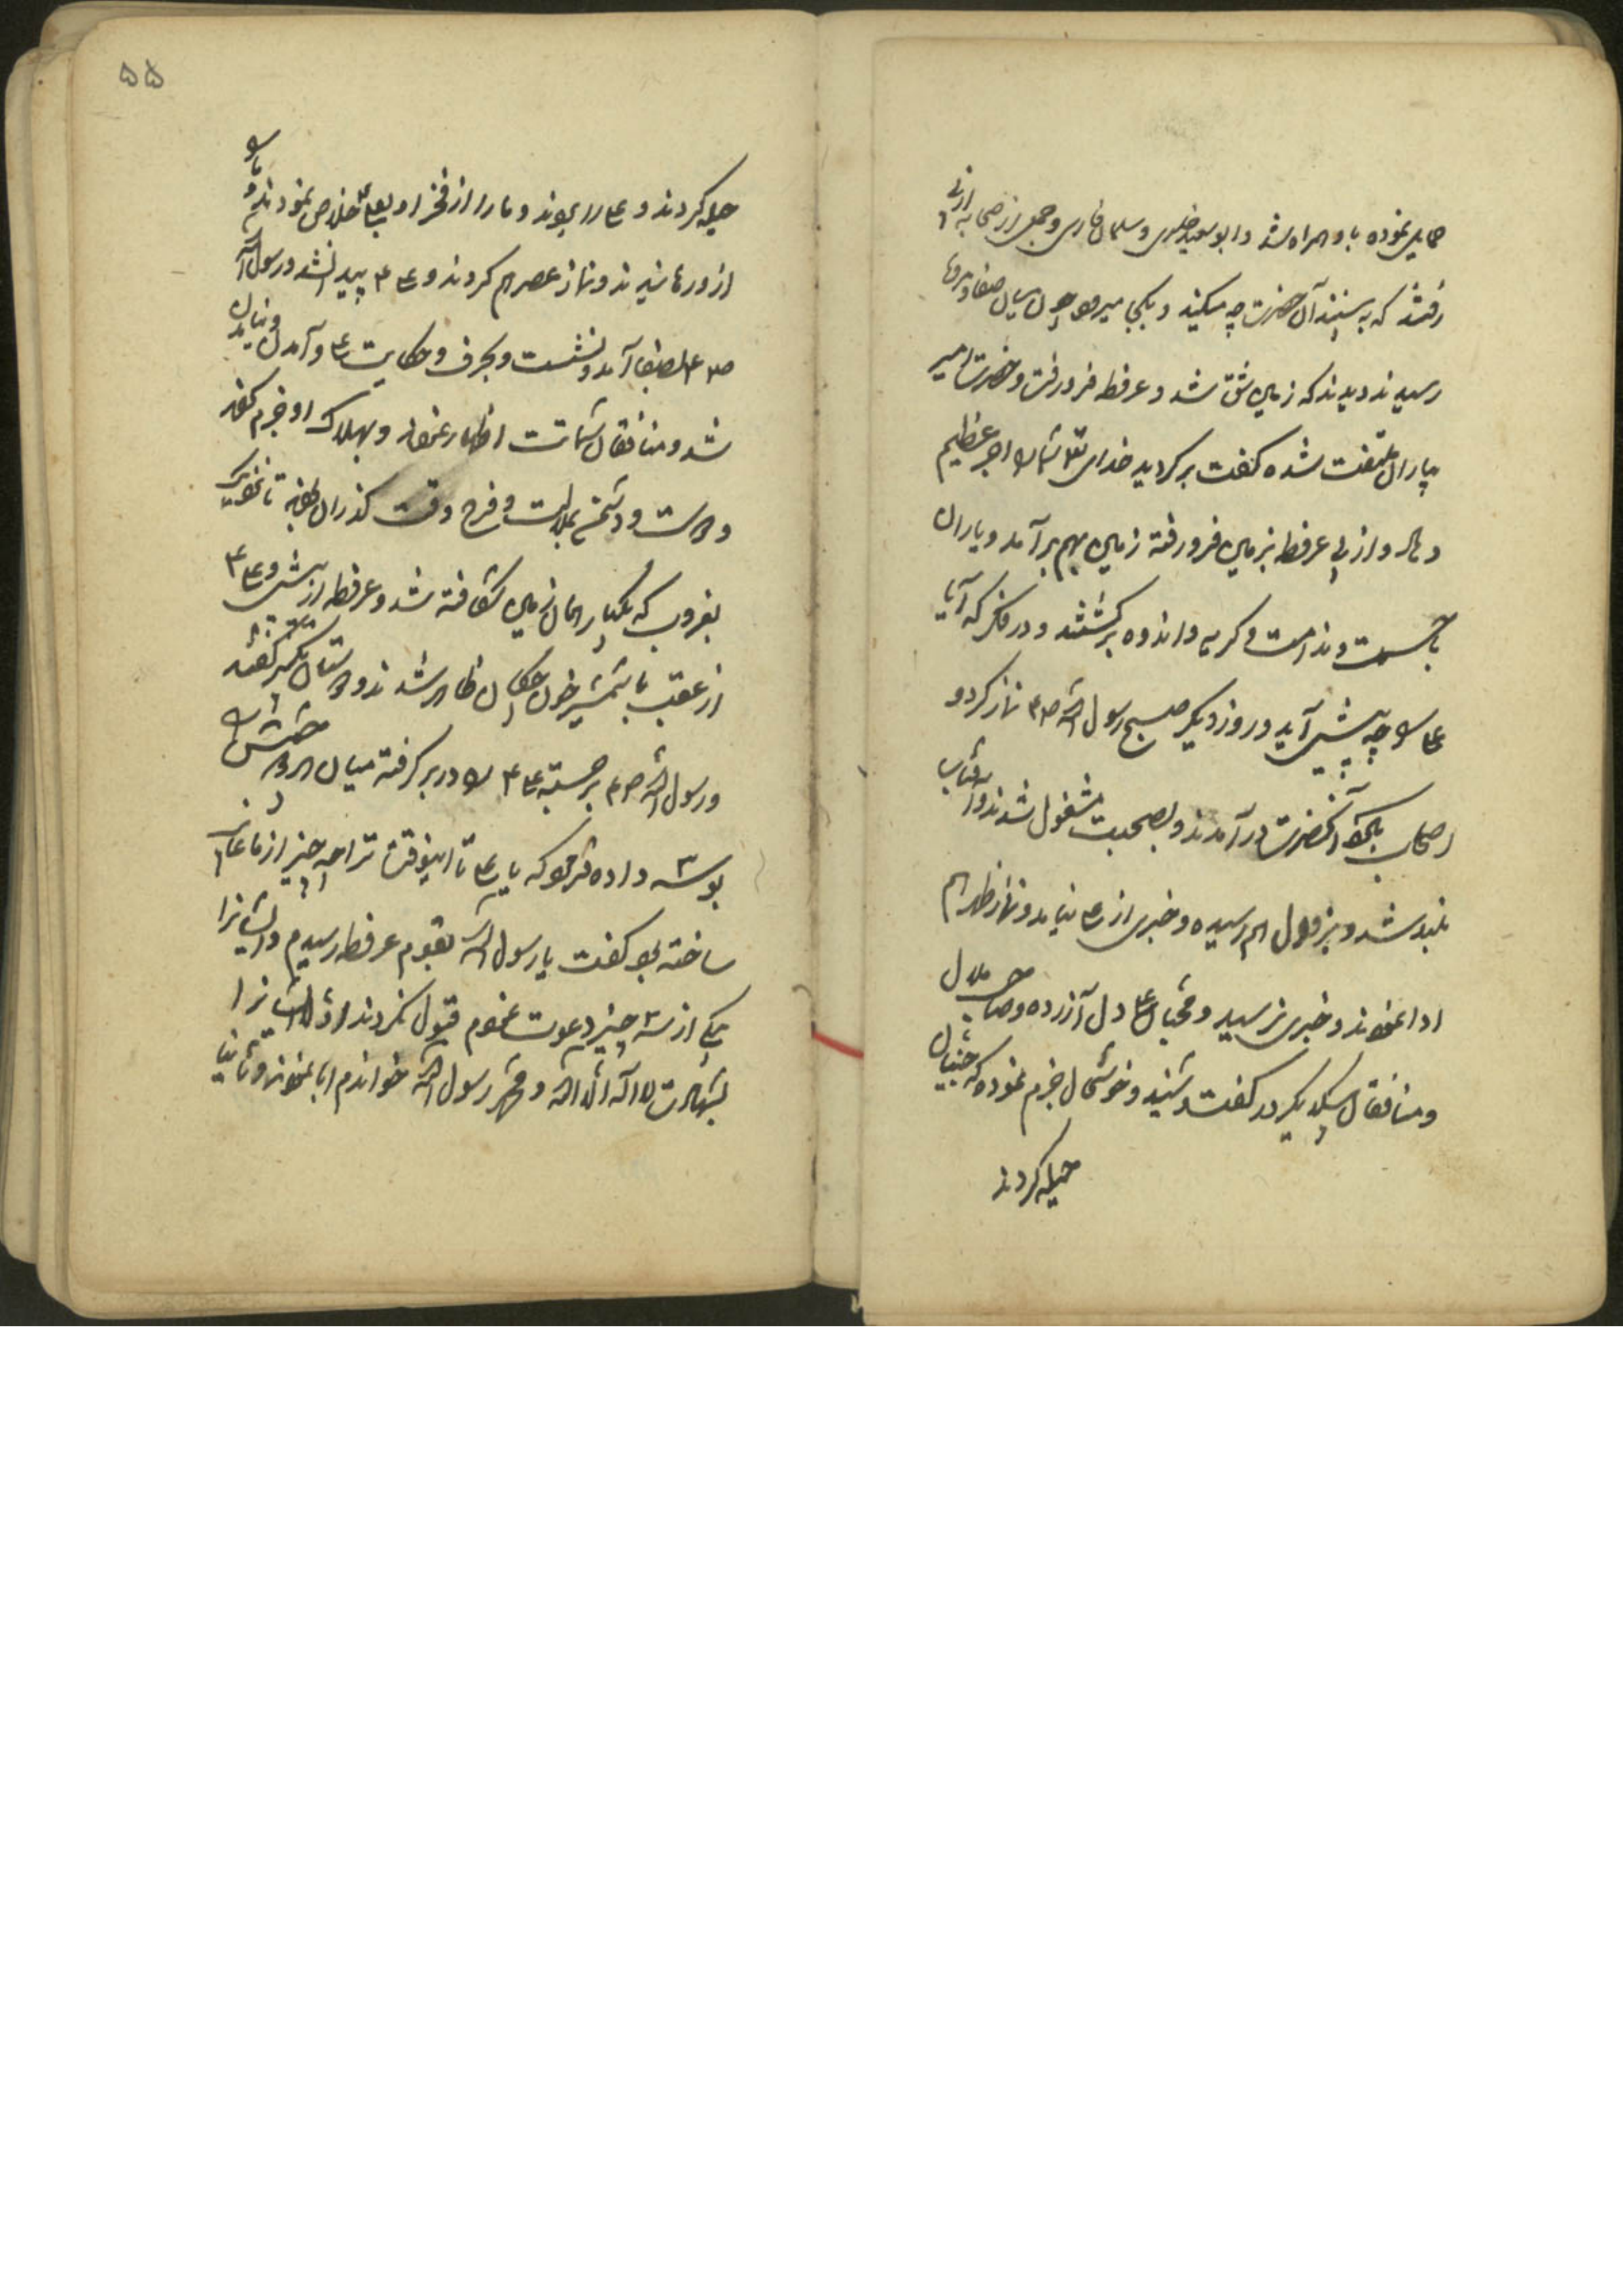 حمایل نموده با او همراه شد و ابو سعید خدری و سلمان فارسی و جمعی از صحابه از پی
رفتند که به بینند آن حضرت چه میکند و بکجا میرود چون میان صفا و مروه
رسیدند دیدند که زمین شق شد و عرفطه فرو رفت و حضرت امیر
بیاران ملتفت شده گفت برگردید خدای تع شما را اجر عظیم
دهاد و از پی عرفطه بزمین فرو رفته زمین بهم بر آمد و یاران
با حسرت و ندامت و گریه و اندوه برگشتند و در فکر که آیا
علی را چه پیش آید و روز دیگر صبح رسول الله ص نماز کرد و
اصحاب بگرد آنحضرت در آمدند و بصحبت مشغول شدند و آفتاب
بلند شد و بزوال هم رسیده و خبری از علی نیامد و نماز ظهر هم
ادا نمودند و خبری نرسید و محبان علی دل آزرده و صاحب ملال
و منافقان بیکدیگر در گفت و شنید و خوشحال جزم نموده که جنیان
حیله کردند
۵۵
حیله کردند و علی را بردند و ما را از فخر او بعلی خلاص نمودند و ما را
از ورهانیدند و نماز عصر هم کردند و علی ع پیدا نشد و رسول الله
ص بصفا آمد و نشست و بحرف و حکایت علی و آمدن و نیامدن
شد و منافقان شماتت اظهار نمودند و بهلاک او جزم کردند
و دوست و دشمن بملالت و فرح وقت گذران بوده تا نزدیک
بغروب که بیکبار همان زمین شکافته شد و عرفطه از پیش و علی ع
از عقب با شمشیر خون چکان ظاهر شدند و دوستان تکبیر گفتند
و رسول الله ص برجسته علی ع را در بر گرفته میان هر دو چشمش را
بوسه داده فرمود که یا علی تا اینوقت ترا چه چیز از ما غایب
ساخته بود گفت یا رسول الله بقوم عرفطه رسیدم و ایشانرا
بیکی از سه چیز دعوت نمودم قبول نکردند اول ایشانرا
بشهادت لا اله الا الله و محمد رسول الله خواندم ابا نمودند و ثانیا